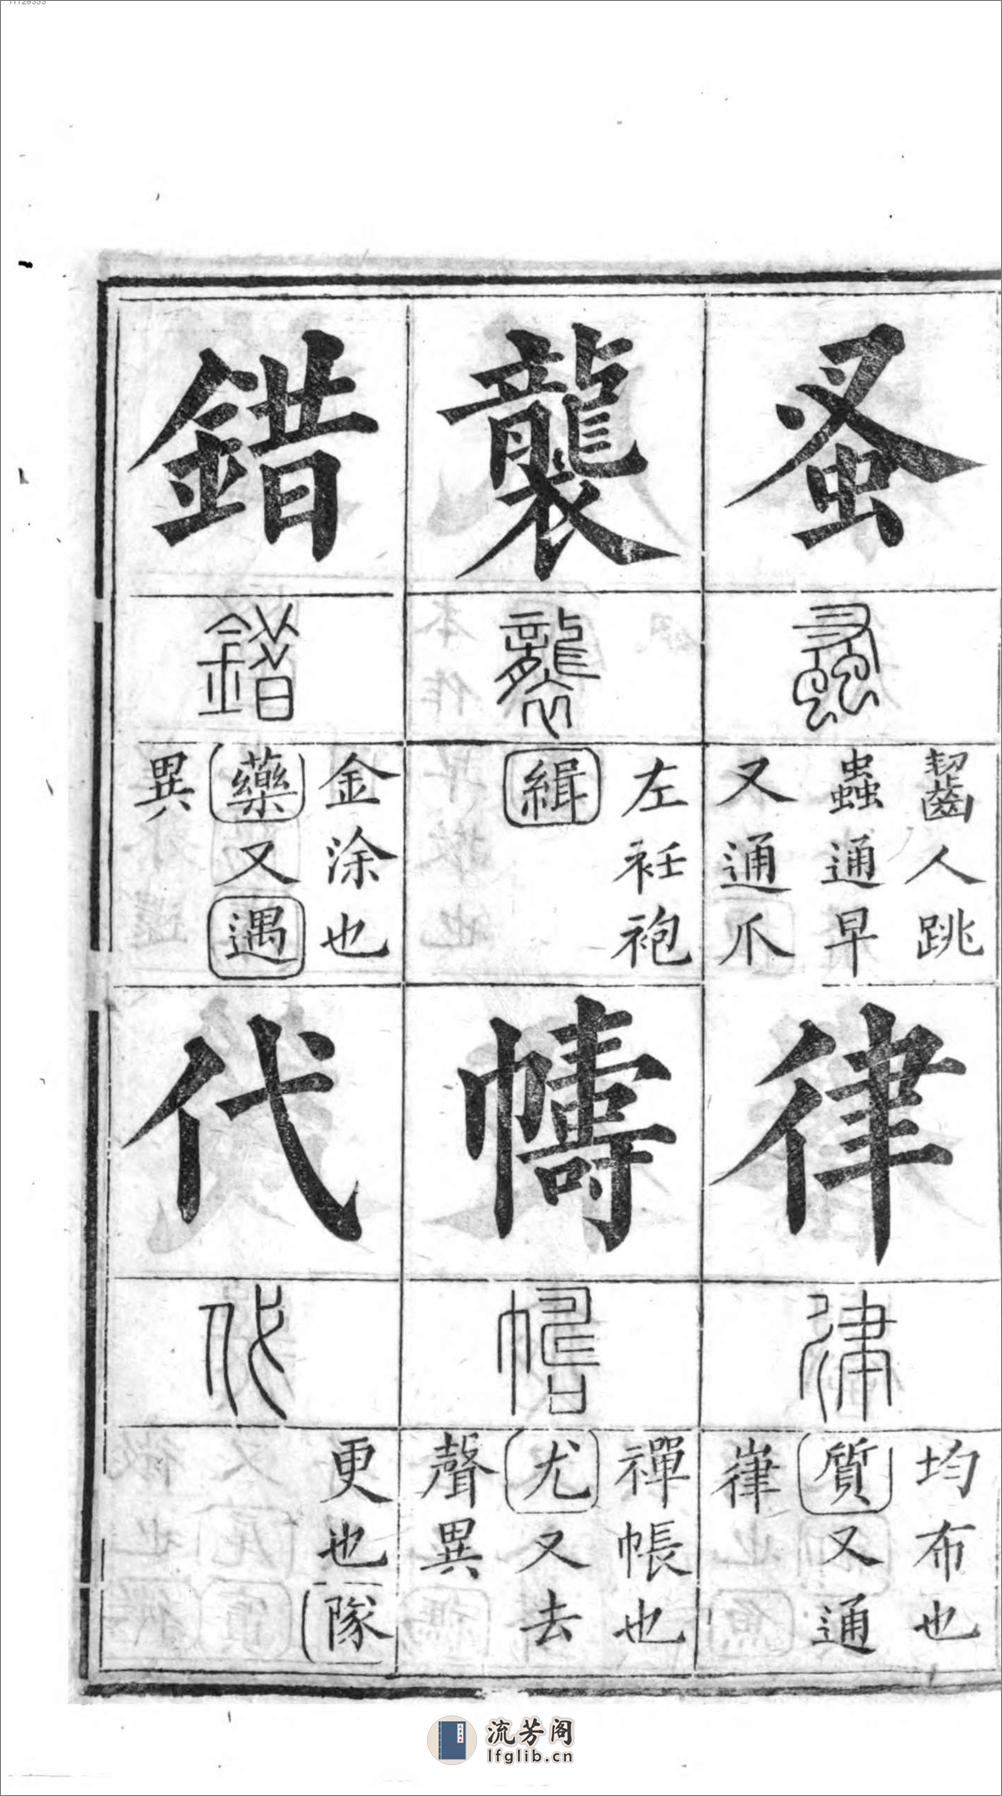 蚤
齧人跳
蟲通早
又通爪
律
均布也
質又通
嵂
襲
左衽袍
緝
幬
禪帳也
尤又去
聲異
錯
金涂也
藥又遇
異
代
更也隊
流芳阁
lfglib.cn